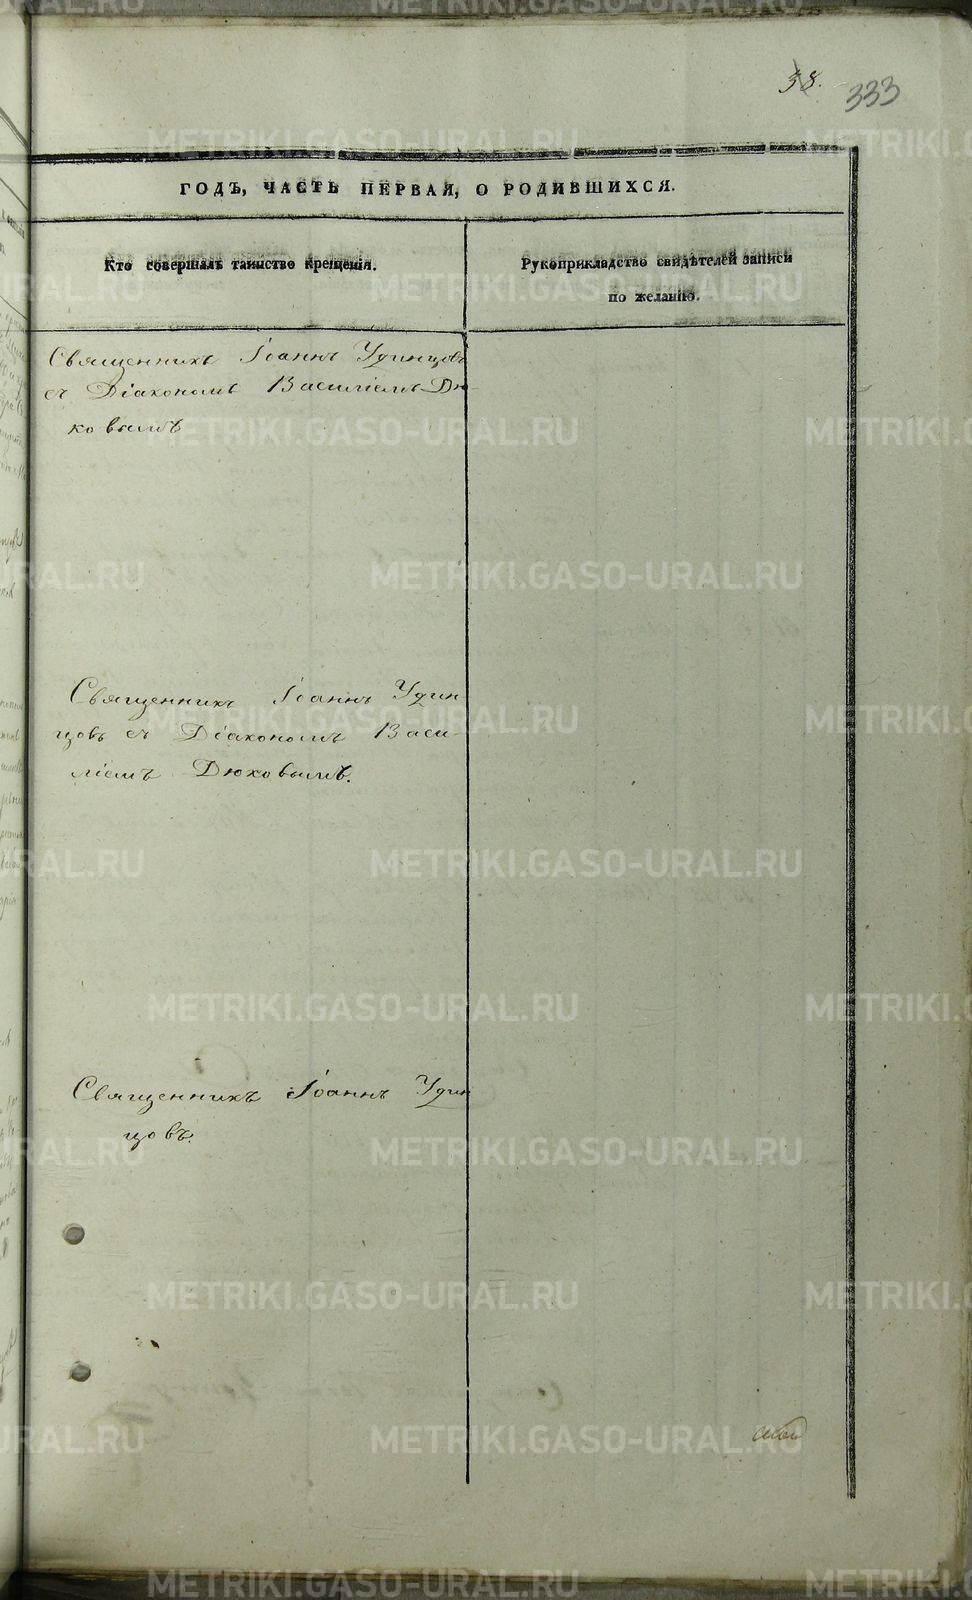 38. 333
ГОДЪ, ЧАСТЬ ПЕРВАЯ, О РОДИВШИХСЯ.
Кто совершалъ таинство крещенія.
Рукоприкладство свидѣтелей записи
по желанію.
Священникъ Іоаннъ Удинцовъ
съ Діакономъ Василіемъ Дю-
ковымъ
Священникъ Іоаннъ Удин
цовъ съ Діакономъ Васи-
ліемъ Дюковымъ.
Священникъ Іоаннъ Удин
цовъ.
METRIKI.GASO-URAL.RU